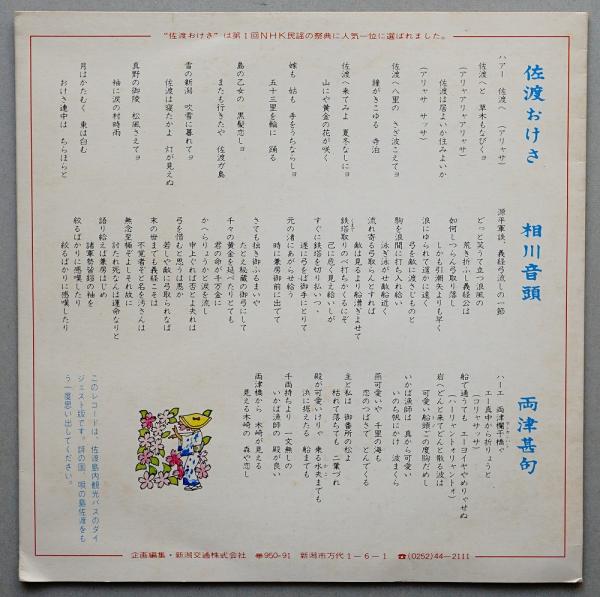 "佐渡おけさ"は第1回NHK民謡の祭典に人気一位に選ばれました。
佐渡おけさ
ハアー 佐渡へ(アリャサ)
佐渡へと 草木もなびくヨ
(アリャアリャアリャサ)
佐渡は居よいか住みよいか
(アリャサ サッサ)
佐渡へ八里の さざ波こえてヨ
鐘がきこゆる 寺泊
佐渡へ来てみよ 夏冬なしにヨ
山にや黄金の花が咲く
嫁も 姑も 手をうちならしヨ
五十三里を輪に 踊る
島の乙女の 黒髪恋しヨ
またも行きたや 佐渡が島
雪の新潟 吹雪に暮れてヨ
佐渡は寝たかよ 灯が見えぬ
真野の御陵 松風さえてヨ
袖に涙の村時雨
月はかたむく 東は白む
おけさ連中は ちらほらと
相川音頭
源平軍談、義経弓流しの一節
どっと笑うて立つ浪風の
荒き折ふし義経公は
如何しつらん弓取り落し
しかも引潮矢よりも早く
浪にゆられて遥かに遠く
弓を敵に渡さじものと
駒を浪間に打ち入れ給い
泳ぎ泳がせ敵船近く
流れ寄る弓取らんとすれば
敵は見るより船漕ぎよせて
鉄塔取りのべ打ちかくるにぞ
己に危く見え給いしが
すぐに鉄塔を切り払いつゝ
遂に弓をば御手にとりて
元の渚にあがらせ給う
時に兼房御前に出でて
さても拙き御ふるまいや
たとえ秘蔵の御弓にして
千々の黄金を延べたりとても
君の命が千万金に
かへらりょうかと涙を流し
申上ぐれば否とよ夫れは
弓を惜むと思うは愚か
若しや敵に弓取られなば
末の世までも義経こそは
不覚者ぞと名を汚さんは
無念至極ぞよしそれ故に
討たれ死なんは運命なりと
語り給えば兼房はじめ
諸軍勢皆鎧の袖を
絞るばかりに感嘆したり
絞るばかりに感嘆したり
両津甚句
ハーエ 両津欄干橋ゃ
エー真中から折りょうと
(コリャサッサ)
船で通うても エーコイヤやめりゃせぬ
(ハーリャントォリャントォ)
岩へどんと来てどんと散る波は
可愛い船頭ごの度胸だめし
いかば漁師は 真から可愛い
いのち帆にかけ 波まくら
燕可愛いや 千里の海も
恋のつばさで とんでくる
主と私は 御番所の松よ
枯れて落ちても 二葉づれ
殿が可愛いけりゃ 乗る水夫までも
浜に揚えたる 船までも
千両持ちより 一文無しの
いかば漁師の 殿が良い
両津橋から 木崎が見える
見える木崎の 森や恋し
このレコードは、佐渡島内観光バスのダイ
ジェスト版です。詩の国、唄の島佐渡をも
う一度思い出してください。
企画編集・新潟交通株式会社 〒950-91 新潟市万代1-6-1 ☎(0252)44-2111